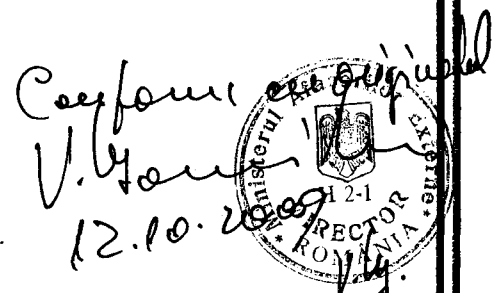 Conform cu originalul
V.
12.10.2009
Ministerul Afacerilor Externe *
H 2-1
DIRECTOR
* ROMÂNIA *